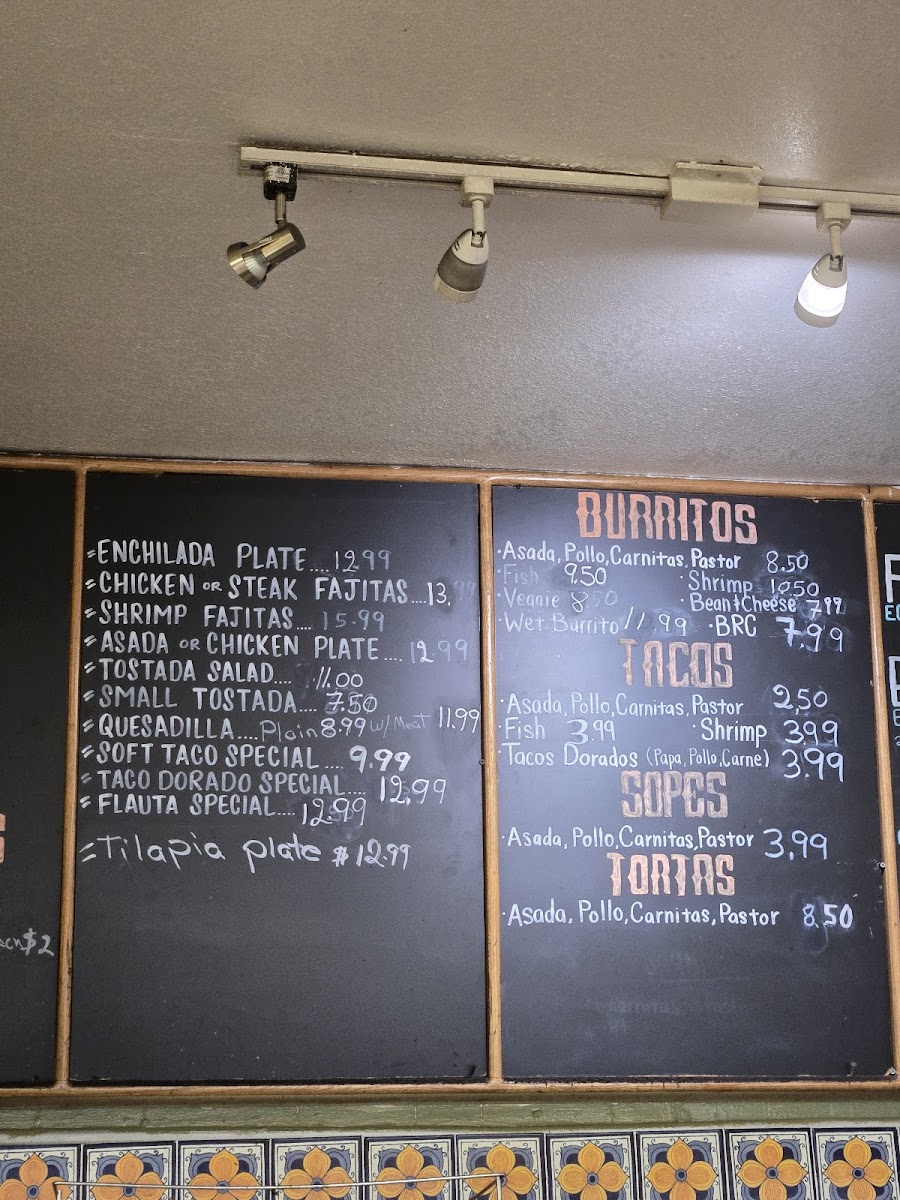 ENCHILADA PLATE....12.99
CHICKEN OR STEAK FAJITAS....13.99
SHRIMP FAJITAS.... 15.99
ASADA OR CHICKEN PLATE.... 12.99
TOSTADA SALAD.... 11.00
SMALL TOSTADA.... 7.50
QUESADILLA.... Plain 8.99 w/ Meat 11.99
SOFT TACO SPECIAL .... 9.99
TACO DORADO SPECIAL.... 12.99
FLAUTA SPECIAL.... 12.99
Tilapia plate $12.99
$2
BURRITOS
·Asada, Pollo, Carnitas, Pastor 8.50
·Fish 9.50 ·Shrimp 10.50
·Veggie 8.50 ·Bean & Cheese 7.99
·Wet Burrito 11.99 ·BRC 7.99
TACOS
·Asada, Pollo, Carnitas, Pastor 2.50
·Fish 3.99 ·Shrimp 3.99
·Tacos Dorados (Papa, Pollo, Carne) 3.99
SOPES
·Asada, Pollo, Carnitas, Pastor 3.99
TORTAS
·Asada, Pollo, Carnitas, Pastor 8.50